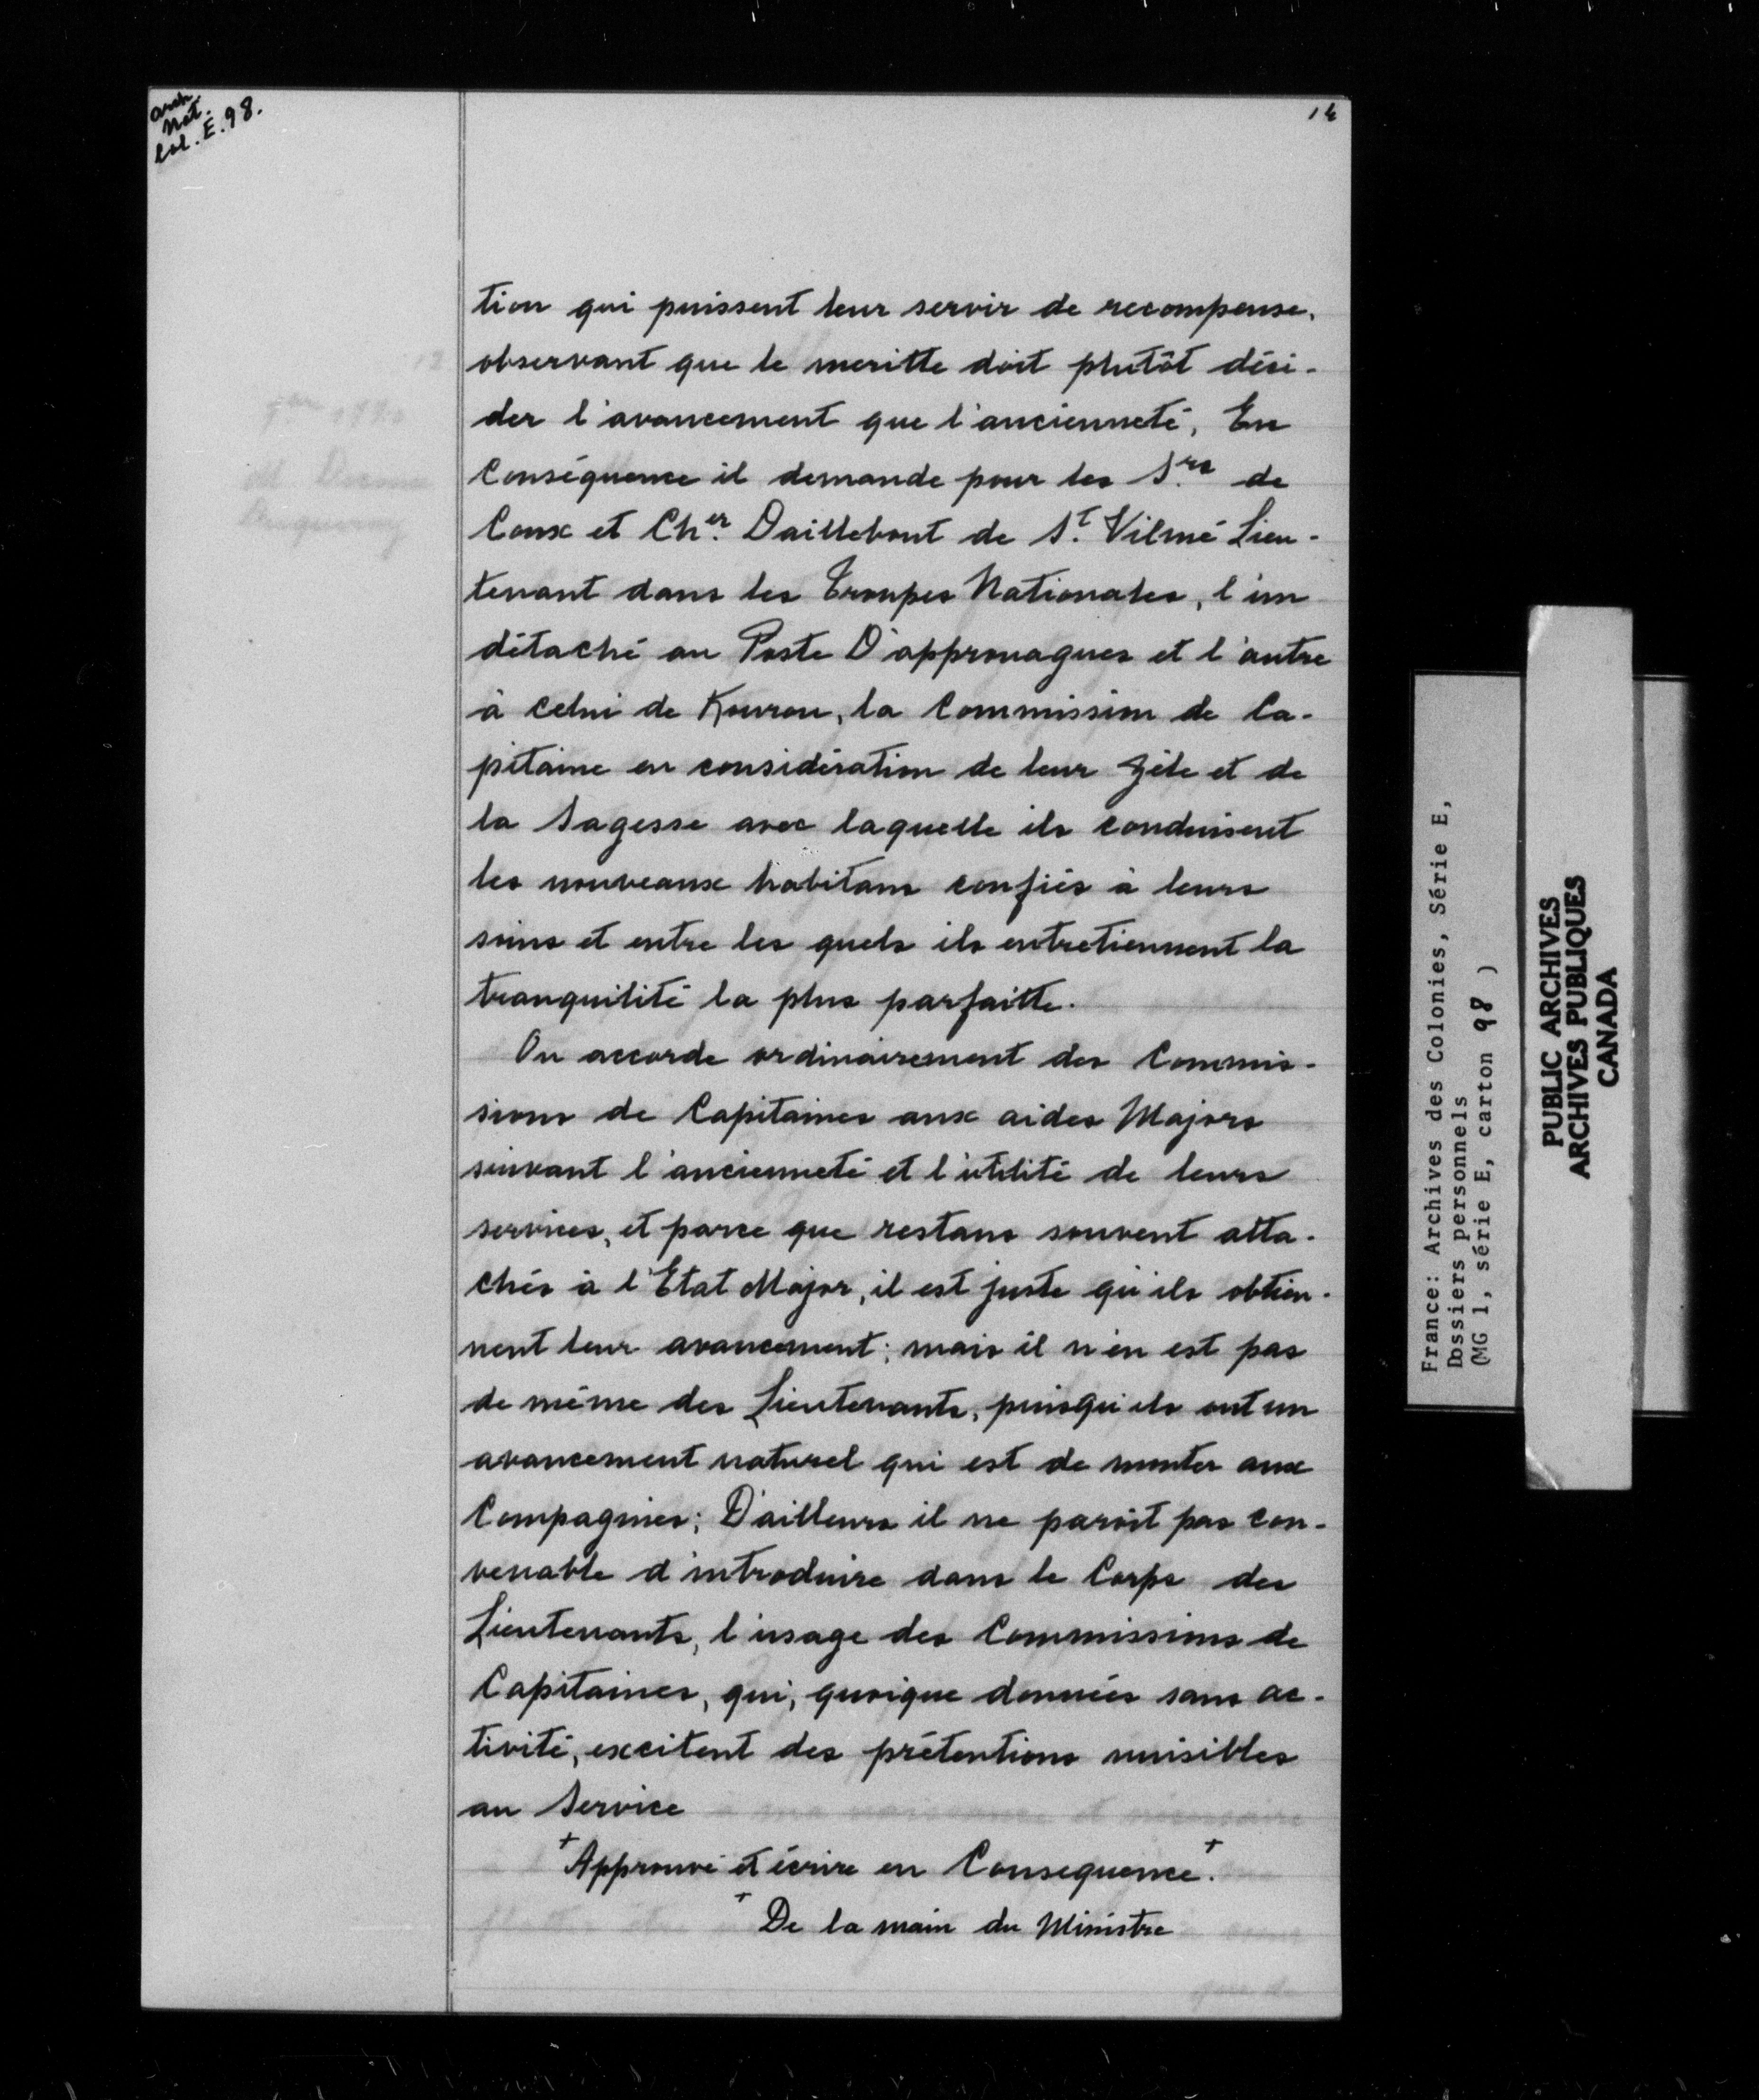 arch
Nat.
Col. E. 98.
14
tion qui puissent leur servir de recompense,
observant que le meritte doit plutôt dési-
der l'avancement que l'ancienneté, En
Conséquence il demande pour les S.rs de
Coux et Ch.er Daillebout de S.t Vilmé Lieu-
tenant dans les Troupes Nationales, l'un
détaché au Poste D'approuagues et l'autre
à celui de Kourou, la Commission de Ca-
pitaine en considération de leur Zéle et de
la Sagesse avec laquelle ils conduisent
les nouveaux habitans confiés à leurs
soins et entre les quels ils entretiennent la
tranquilité la plus parfaitte.
On accorde ordinairement des Commis-
sions de Capitaines aux aides Majors
suivant l'ancienneté et l'utilité de leurs
services, et parce que restans souvent atta-
chés à l'Etat Major, il est juste qu'ils obtien-
nent leur avancement; mais il n'en est pas
de même des Lieutenants, puisqu'ils ont un
avancement naturel qui est de monter aux
Compagnies; D'ailleurs il ne paroit pas con-
venable d'introduire dans le Corps des
Lieutenants, l'usage des Commissions de
Capitaines, qui, quoique données sans ac-
tivité, excitent des prétentions nuisibles
au Service
+Approuvé et écrire en Consequence+.
+De la main du Ministre
France: Archives des Colonies, Série E,
Dossiers personnels
(MG 1, série E, carton 98 )
PUBLIC ARCHIVES
ARCHIVES PUBLIQUES
CANADA